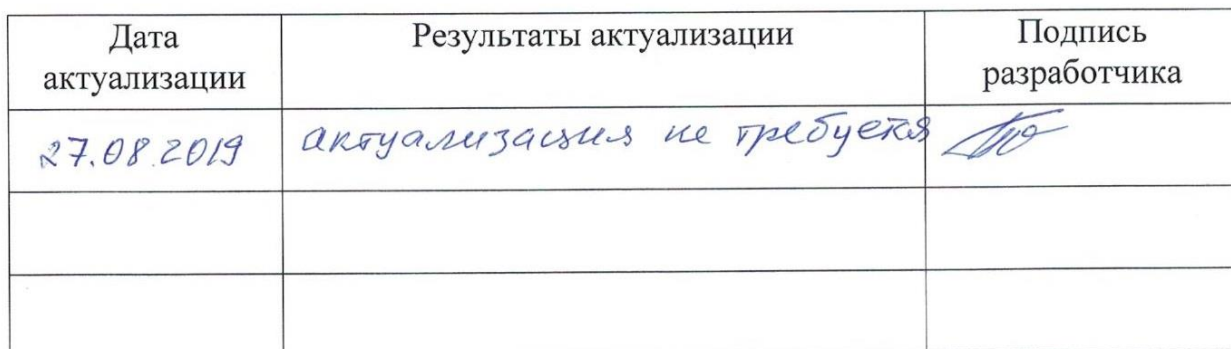 Дата актуализации
Результаты актуализации
Подпись разработчика
27.08.2019
актуализация не требуется